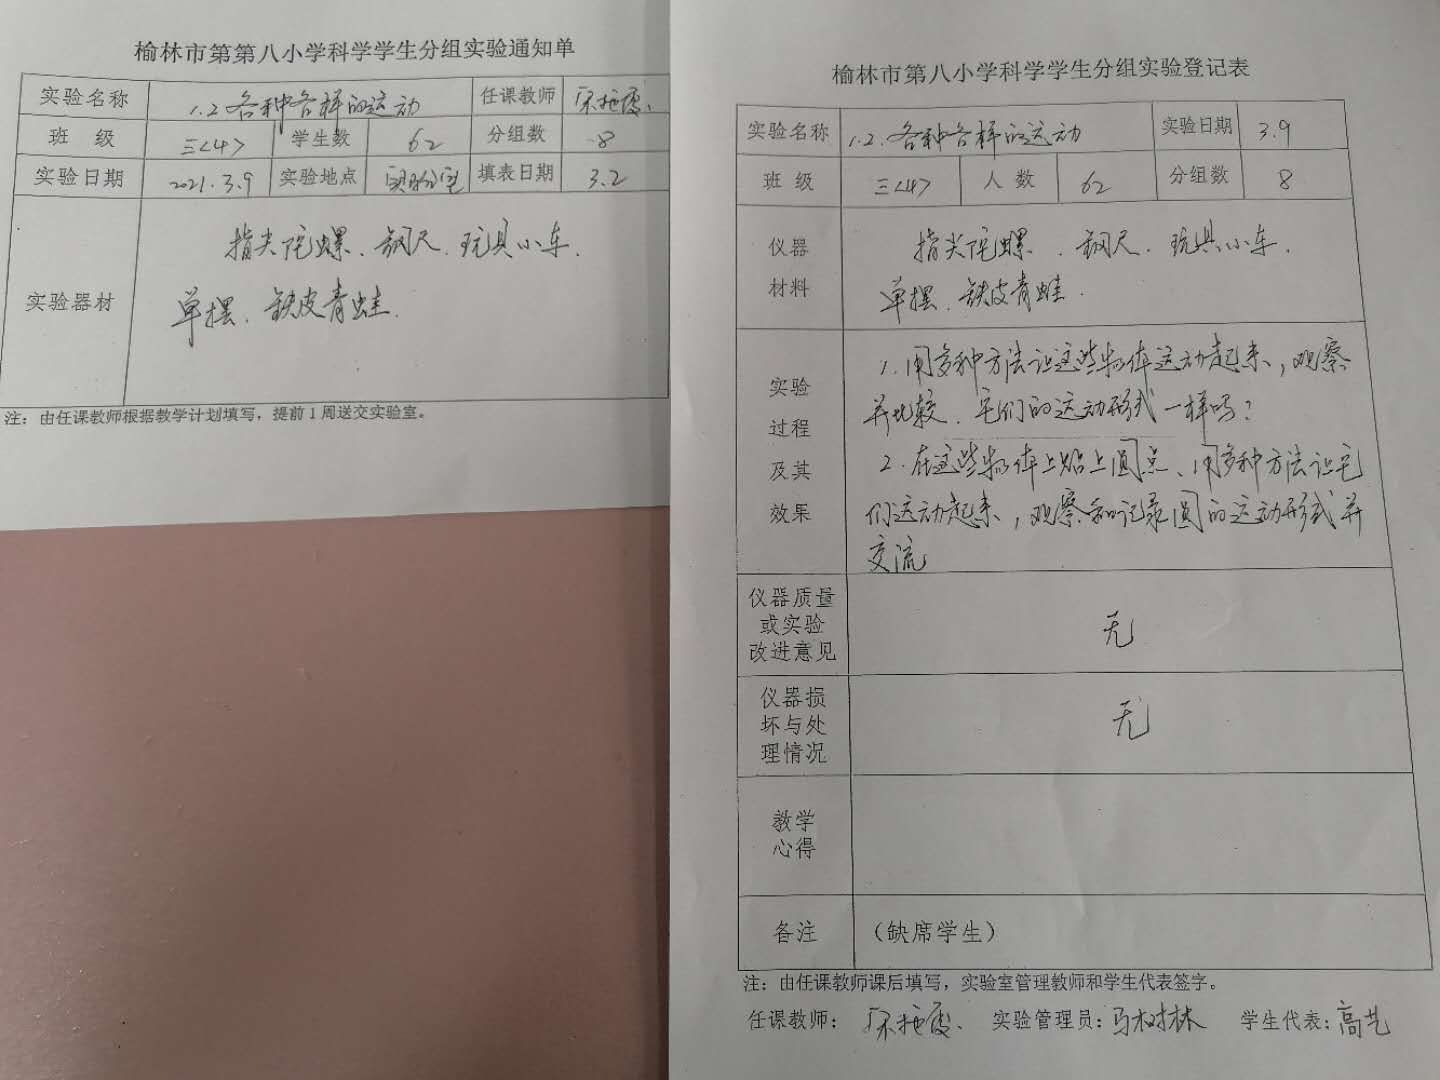 榆林市第第八小学科学学生分组实验通知单
实验名称 1.2各种各样的运动 任课教师
班 级 三<4> 学生数 62 分组数 8
实验日期 2021.3.9 实验地点 实验室 填表日期 3.2
实验器材
指尖陀螺、钢尺.玩具小车.
单摆、铁皮青蛙.
注：由任课教师根据教学计划填写，提前1周送交实验室。
榆林市第八小学科学学生分组实验登记表
实验名称 1.2.各种各样的运动 实验日期 3.9
班 级 三<4> 人 数 62 分组数 8
仪器
材料
指尖陀螺、钢尺.玩具小车.
单摆、铁皮青蛙.
实验
过程
及其
效果
1.用多种方法让这些物体运动起来，观察
并比较.它们的运动形式一样吗?
2.在这些物体上贴上圆点、用多种方法让它
们运动起来，观察和记录圆的运动形式并
交流
仪器质量
或实验
改进意见
无
仪器损
坏与处
理情况
无
教学
心得
各注 （缺席学生）
注：由任课教师课后填写，实验室管理教师和学生代表签字。
任课教师： 实验管理员：马树林 学生代表：高艺